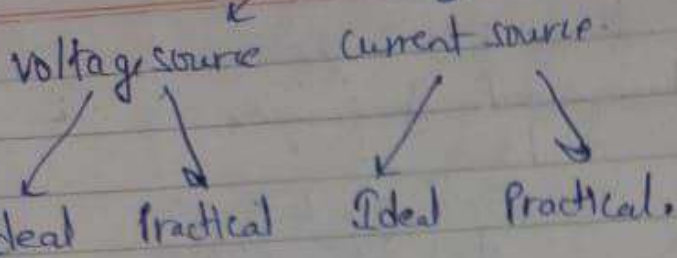 voltag source current source.
deal Practical Ideal Practical.